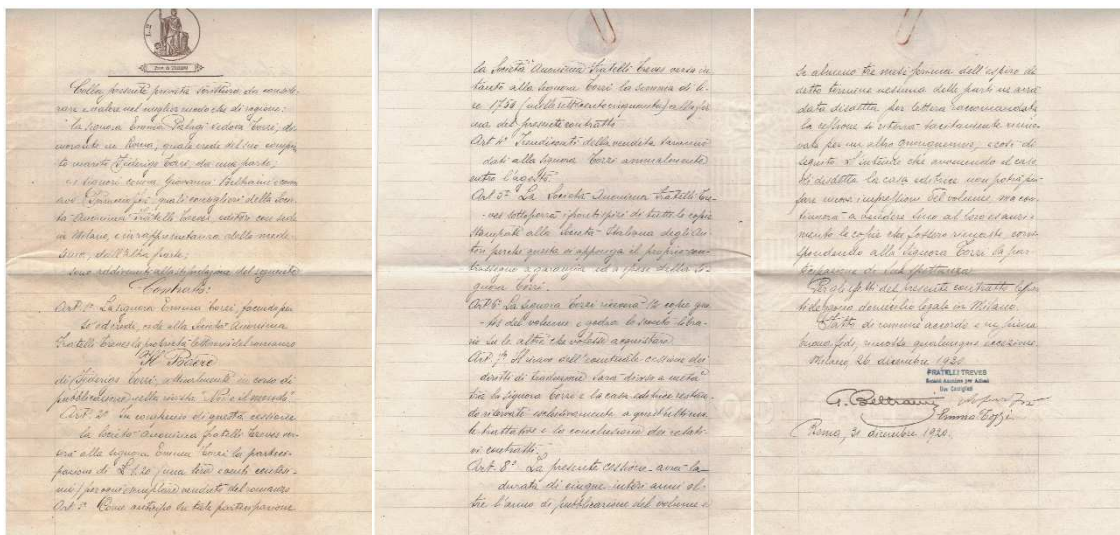 Colla presente privata scrittura da conside-
rarsi e valere nel miglior modo che di ragione:
la signora Emma Palagi vedova Tozzi, di-
morante in Roma, quale erede del suo compian-
to marito Federigo Tozzi, da una parte;
e i signori comm. Giovanni Beltrami e comm.
quali consiglieri della Socie-
tà Anonima Fratelli Treves, editori con sede
in Milano, e in rappresentanza della mede-
sima, dall'altra parte;
sono addivenuti alla stipulazione del seguente
Contratto:
Art. 1º La signora Emma Tozzi, facendo per
sé ed eredi, cede alla Società Anonima
Fratelli Treves la proprietà letteraria del romanzo
"Il Podere"
di Federigo Tozzi, attualmente in corso di
pubblicazione nella rivista "Noi e il mondo".
Art. 2º In compenso di questa cessione
la Società Anonima Fratelli Treves ver-
serà alla signora Emma Tozzi la parteci-
pazione di L. 1.20 (una lira e venti centesi-
mi) per ogni esemplare venduto del romanzo
Art. 3º Come anticipo su tale partecipazione
la Società Anonima Fratelli Treves versa in-
tanto alla signora Tozzi la somma di li-
re 1750 (millesettecentocinquanta) alla fir-
ma del presente contratto.
Art. 4º I rendiconti della vendita saranno
dati alla signora Tozzi annualmente
entro l'agosto.
Art. 5º La Società Anonima Fratelli Tre-
ves sottoporrà i frontespizi di tutte le copie
stampate alla Società Italiana degli Au-
tori perché questa vi apponga il proprio con-
trassegno a garanzia ed a spese della si-
gnora Tozzi.
Art. 6º La signora Tozzi riceverà 12 copie gra-
tis del volume e godrà lo sconto libra-
rio su le altre che volesse acquistare.
Art. 7º Il ricavo dell'eventuale cessione dei
diritti di traduzione sarà diviso a metà
tra la signora Tozzi e la casa editrice restan-
do riservate esclusivamente a quest'ultima
le trattative e la conclusione dei relati-
vi contratti.
Art. 8º La presente cessione avrà la
durata di cinque interi anni ol-
tre l'anno di pubblicazione del volume e
se almeno tre mesi prima dell'espiro di
detto termine nessuna delle parti ne avrà
data disdetta per lettera raccomandata
la cessione si riterrà tacitamente rinno-
vata per un altro quinquennio, e così di
seguito. S'intende che avvenendo il caso
di disdetta la casa editrice non potrà più
fare nuove impressioni del volume, ma con-
tinuerà a vendere sino al loro esauri-
mento le copie che fossero rimaste, corri-
spondendo alla signora Tozzi la par-
tecipazione di sua spettanza.
Per gli effetti del presente contratto le par-
ti eleggono domicilio legale in Milano.
Fatto di comune accordo e in piena
buona fede, rimossa qualunque eccezione.
Milano, 26 dicembre 1920.
FRATELLI TREVES
Società Anonima per Azioni
Due Consiglieri
G. Beltrami
Emma Tozzi
Roma, 31 dicembre 1920.